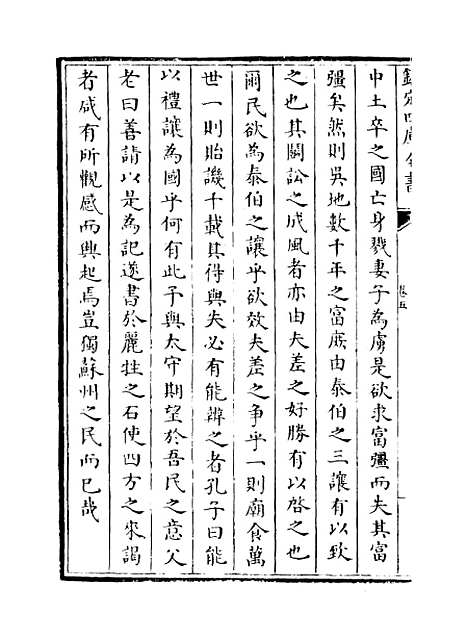 欽定四庫全書
卷五
中土卒之國亡身戮妻子為虜是欲求富彊而失其富
彊矣然則吳地數千年之富庶由泰伯之三讓有以致
之也其鬬訟之成風者亦由夫差之好勝有以啓之也
爾民欲為泰伯之讓乎欲效夫差之爭乎一則廟食萬
世一則貽譏千載其得與失必有能辨之者孔子曰能
以禮讓為國乎何有此予與太守期望於吾民之意父
老曰善請以是為記遂書於麗牲之石使四方之來謁
者咸有所觀感而興起焉豈獨蘇州之民而已哉